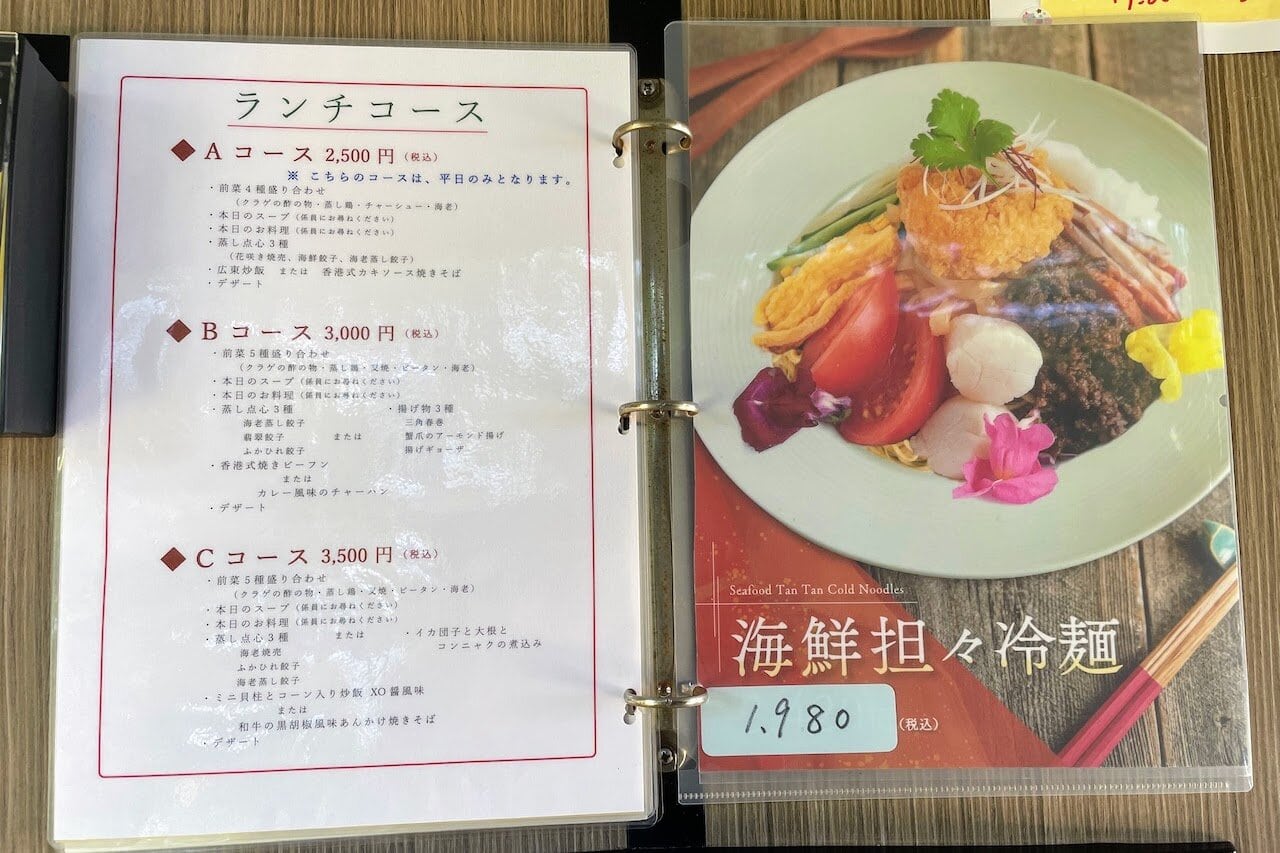 ランチコース
◆Aコース 2,500円(税込)
※ こちらのコースは、平日のみとなります。
・前菜4種盛り合わせ
(クラゲの酢の物・蒸し鶏・チャーシュー・海老)
・本日のスープ(係員にお尋ねください)
・本日のお料理(係員にお尋ねください)
・蒸し点心3種
(花咲き焼売、海鮮餃子、海老蒸し餃子)
・広東炒飯 または 香港式カキソース焼きそば
・デザート
◆Bコース 3,000円(税込)
・前菜5種盛り合わせ
(クラゲの酢の物・蒸し鶏・叉焼・ピータン・海老)
・本日のスープ(係員にお尋ねください)
・本日のお料理(係員にお尋ねください)
・蒸し点心3種 ・揚げ物3種
海老蒸し餃子 三角春巻
翡翠餃子 または 蟹爪のアーモンド揚げ
ふかひれ餃子 揚げギョーザ
・香港式焼きビーフン
または
カレー風味のチャーハン
・デザート
◆Cコース 3,500円(税込)
・前菜5種盛り合わせ
(クラゲの酢の物・蒸し鶏・叉焼・ピータン・海老)
・本日のスープ(係員にお尋ねください)
・本日のお料理(係員にお尋ねください)
・蒸し点心3種 または ・イカ団子と大根と
海老焼売 コンニャクの煮込み
ふかひれ餃子
海老蒸し餃子
・ミニ貝柱とコーン入り炒飯 XO醤風味
または
和牛の黒胡椒風味あんかけ焼きそば
・デザート
Seafood Tan Tan Cold Noodles
海鮮担々冷麺
1.980(税込)